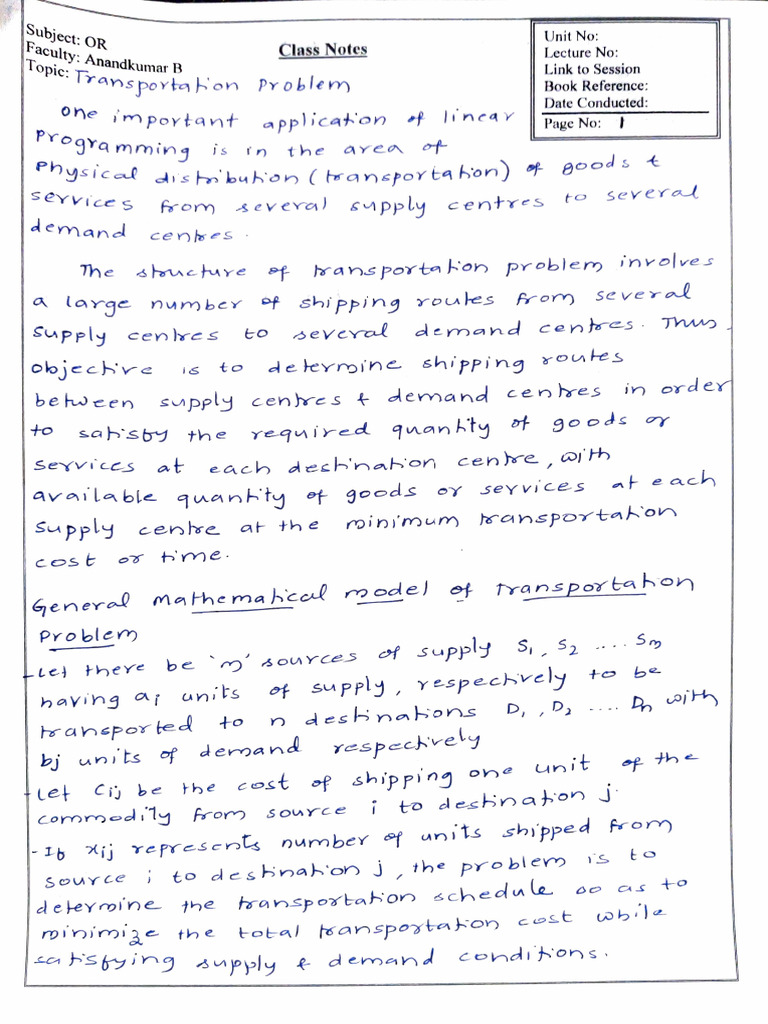 Subject: OR
Faculty: Anandkumar B
Topic: Transportation Problem
Class Notes
Unit No:
Lecture No:
Link to Session
Book Reference:
Date Conducted:
Page No: 1
One important application of linear
programming is in the area of
physical distribution (transportation) of goods &
services from several supply centres to several
demand centres.
The structure of transportation problem involves
a large number of shipping routes from several
supply centres to several demand centres. Thus,
objective is to determine shipping routes
between supply centres & demand centres in order
to satisfy the required quantity of goods or
services at each destination centre, with
available quantity of goods or services at each
supply centre at the minimum transportation
cost or time.
General mathematical model of transportation
Problem
- Let there be 'm' sources of supply S₁, S₂ .... Sm
having ai units of supply, respectively to be
transported to n destinations D₁, D₂ .... Dn with
bj units of demand respectively
- Let Cij be the cost of shipping one unit of the
commodity from source i to destination j.
- If xij represents number of units shipped from
source i to destination j, the problem is to
determine the transportation schedule so as to
minimize the total transportation cost while
satisfying supply & demand conditions.